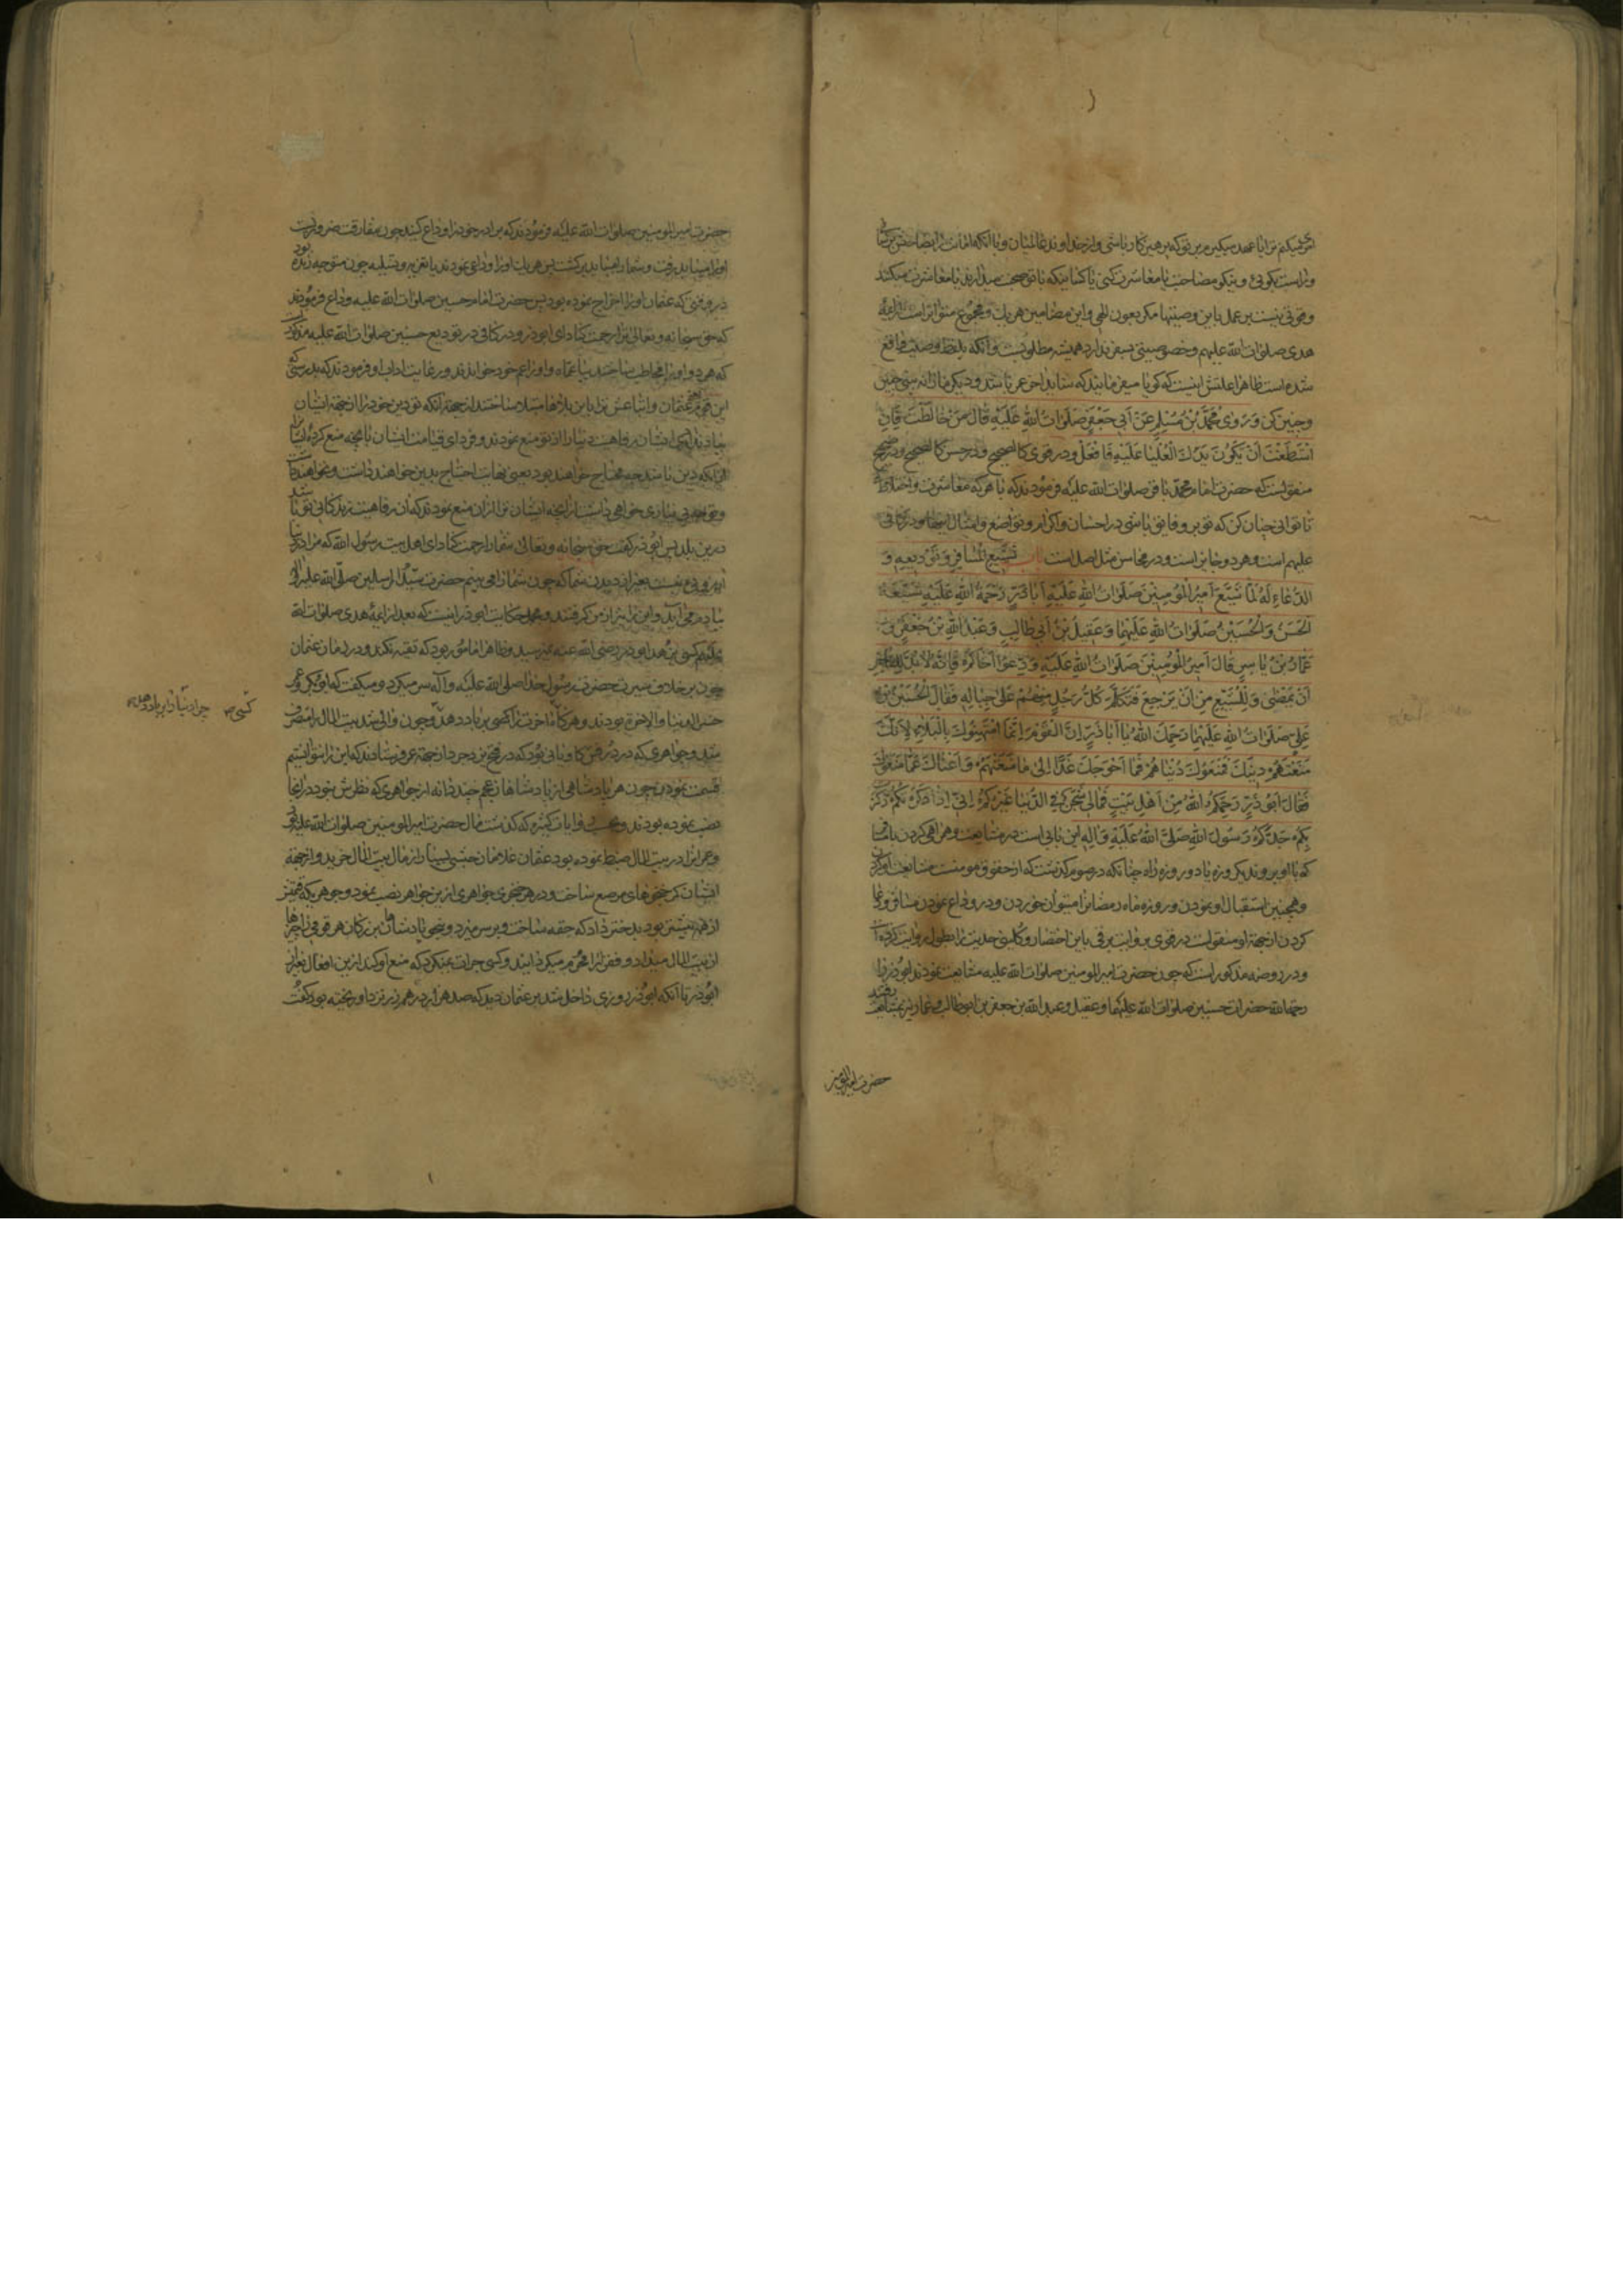 وراست کوئی و نیکو مصاحبت یا معاشرت کنی با کسانیکه با تو صحبت میدارند یا معاشرت میکنند
و قوتی نیست بر عمل باین وصیتها مکر بعون الهی و این مضامین هر یک و مجموع متواتر است از ائمه
هدی صلوات الله علیهم و خصوصیتی بسفر ندارد همیشه مطلوبست و آنکه بلفظ وصیت واقع
شده است ظاهرا علتش اینست که کویا سفر
و چنین کن وَرَوی مُحَمَّدُ بْنُ مُسْلِمٍ عَنْ اَبی جَعْفَرٍ صَلَواتُ اللهِ عَلَیْهِ قالَ مَنْ خالَطْتَ فَاِنِ
اسْتَطَعْتَ اَنْ یَکُونَ یَدُکَ الْعُلْیا عَلَیْهِ فَافْعَلْ و در قوی کالصحیح و در حسن کالصحیح و در صحیح
منقولست که حضرت امام محمد باقر صلوات الله علیه فرمودند که با هر که معاشرت و اختلاط
تا توانی چنان کن که تو برو فایق باشی در احسان و اکرام و تواضع و امثال اینها و در کافی
علیهم است و هر دو جایز است و در محاسن مثل اصل است باب تَشْییعِ الْمُسافِرِ وَ تَوْدیعِهِ وَ
الدُّعاءِ لَهُ لَمّا شَیَّعَ اَمیرُ الْمُؤْمِنینَ صَلَواتُ اللهِ عَلَیْهِ اَباذَرٍّ رَحْمَةُ اللهِ عَلَیْهِ شَیَّعَهُ
الْحَسَنُ وَالْحُسَیْنُ صَلَواتُ اللهِ عَلَیْهِما وَعَقیلُ بْنُ اَبی طالِبٍ وَعَبْدُ اللهِ بْنُ جَعْفَرٍ وَ
عَمّارُ بْنُ یاسِرٍ قالَ اَمیرُ الْمُؤْمِنینَ صَلَواتُ اللهِ عَلَیْهِ وَدِّعُوا اَخاکُمْ فَاِنَّهُ لابُدَّ لِلشّاخِصِ
اَنْ یَمْضِیَ وَلِلْمُشَیِّعِ مِنْ اَنْ یَرْجِعَ فَتَکَلَّمَ کُلُّ رَجُلٍ مِنْهُمْ عَلی حِیالِهِ فَقالَ الْحُسَیْنُ بْنُ
عَلِیٍّ صَلَواتُ اللهِ عَلَیْهِما رَحِمَکَ اللهُ یا اَباذَرٍّ اِنَّ الْقَوْمَ اِنَّما امْتَهَنُوکَ بِالْبَلاءِ لِاَنَّکَ
مَنَعْتَهُمْ دینَکَ فَمَنَعُوکَ دُنْیاهُمْ فَما اَحْوَجَکَ غَدًا اِلی ما مَنَعْتَهُمْ وَاَغْناکَ عَمّا مَنَعُوکَ
فَقالَ اَبُوذَرٍّ رَحِمَکُمُ اللهُ مِنْ اَهْلِ بَیْتٍ فَمالی شَجَنٌ فِی الدُّنْیا غَیْرُکُمْ اِنّی اِذا ذَکَرْتُکُمْ ذَکَرْتُ
بِکُمْ جَدَّکُمْ رَسُولَ اللهِ صَلَّی اللهُ عَلَیْهِ وَآلِهِ این بابی است در مشایعت و همراهی کردن با مسافر
که با او بروند یکروزه یا دو روزه راه چنانکه در صوم کذشت که از حقوق مومنست مشایعت او کردن
و همچنین استقبال او نمودن و روزه ماه رمضانرا میتوان خوردن و در وداع نمودن مسافر و دعا
کردن از جهة او منقولست در قوی بروایت برقی باین اختصار و کلینی حدیث را بطول روایت کرده است
و در روضه مذکور است که چون حضرت امیر المومنین صلوات الله علیه مشایعت نمودند ابوذر را
رحمه الله حضرات حسنین صلوات الله علیهما و عقیل و عبد الله بن جعفر بن ابوطالب و عمار نیز بمشایعت رفتند
حضرت امیر المومنین
حضرت امیر المومنین صلوات الله علیه فرمودند که برادر خود را وداع کنید چون مفارقت ضرورست
او را میباید رفت و شما را میباید برکشت پس هر یک او را وداع نمودند بتعزیه و تسلیه چون متوجه ربذه بود
در وقتی که عثمان او را اخراج نموده بود پس حضرت امام حسین صلوات الله علیه وداع فرمودند
که حق سبحانه و تعالی ترا رحمت کناد ای ابوذر و در کافی در تودیع حسنین صلوات الله علیه مذکور
که هر دو او را مخاطب ساختند بیا عماه و او را عم خود خواندند و رعایت اداب او فرمودند که بدرستی که
این قوم یعنی عثمان و اتباعش ترا باین بلاها مبتلا ساختند از جهة آنکه تو دین خود را از جهة ایشان
و تو چه بی نیازی خواهی داشت از آنچه ایشان ترا از آن منع نمودند که آن رفاهیت زندکانی تو باشد
درین بلد پس ابوذر کفت حق سبحانه و تعالی شما را رحمت کناد ای اهل بیت رسول الله که مرا در دنیا
ارزوئی نیست بغیر از دیدن شما که چون شما را می بینم حضرت سید المرسلین صلی الله علیه و اله
بیادم می آید و این را نیز از من کرفتند و مجمل حکایت ابوذر اینست که بعد از ائمه هدی صلوات الله
علیهم کسی بزهد ابوذر رضی الله عنه نمیرسید و ظاهرا مامور بود که تقیه نکند و در زمان عثمان
چون بر خلاف سیرت حضرت رسول خدا صلی الله علیه و آله سر میکرد و میکفت که ابوبکر و عمر
خسر الدنیا و الاخرة بودند و هر کاه اخرت را کسی بر باد دهد و چون والی شد بیت المال را متصرف
کسی صح چرا دنیا را بر باد دهد
شد و جواهری که در درفش کاویانی بود که در فتح یزدجرد از جهة عمر فرستادند که این را نتوانستیم
قسمت نمودن چون هر پادشاهی از پادشاهان عجم چند دانه از جواهری که نظرش نبود در انجا
نصب نموده بودند و بموجب روایات کثیره که کذشت مال حضرت امیر المومنین صلوات الله علیه بود
و عمر انرا در بیت المال ضبط نموده بود عثمان غلامان حبشی بسیار از مال بیت المال خرید و از جهة
ایشان کمر خنجرهای مرصع ساخت و در هر خنجری جواهری ازین جواهر نصب نمود و جوهریکه قیمتش
از همه بیشتر بود بدختر داد که حقه ساخت و بر سر میزد
از بیت المال میداد و فقرا را محروم میکردانیدند و کسی جرات نمیکرد که منع او کند ازین افعال بغیر از
ابوذر تا آنکه ابوذر روزی داخل شد بر عثمان دید که صد هزار درهم زر نزد او ریخته بود کفت